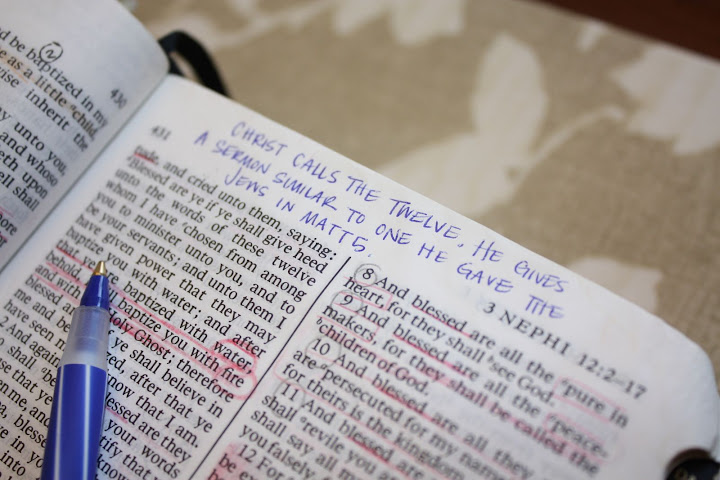 2
be baptized in my
as a little child,
inherit the
430
unto you,
and whoso
upon
shall
431
CHRIST CALLS THE TWELVE. HE GIVES
A SERMON SIMILAR TO ONE HE GAVE THE
JEWS IN MATT 5.
3 NEPHI 12:2–17
tude, and cried unto them, saying:
Blessed are ye if ye shall give heed
unto the words of these twelve
whom I have chosen from among
you to minister unto you, and to
be your servants; and unto them I
have given power that they may
baptize you with water; and after
that ye are baptized with water,
behold, I will baptize you with fire
and with Holy Ghost; therefore
blessed ye shall believe in
me and be after that ye
have seen know that I am.
And again blessed are they
shall your words
that ye tify that
8 And blessed are all the pure in
heart, for they shall see God.
9 And blessed are all the peace-
makers, for they shall be called the
children of God.
10 And blessed are all they
are persecuted for my name's
for theirs is the kingdom
11 And blessed are
shall revile you
shall say all
you falsely,
12 For
be